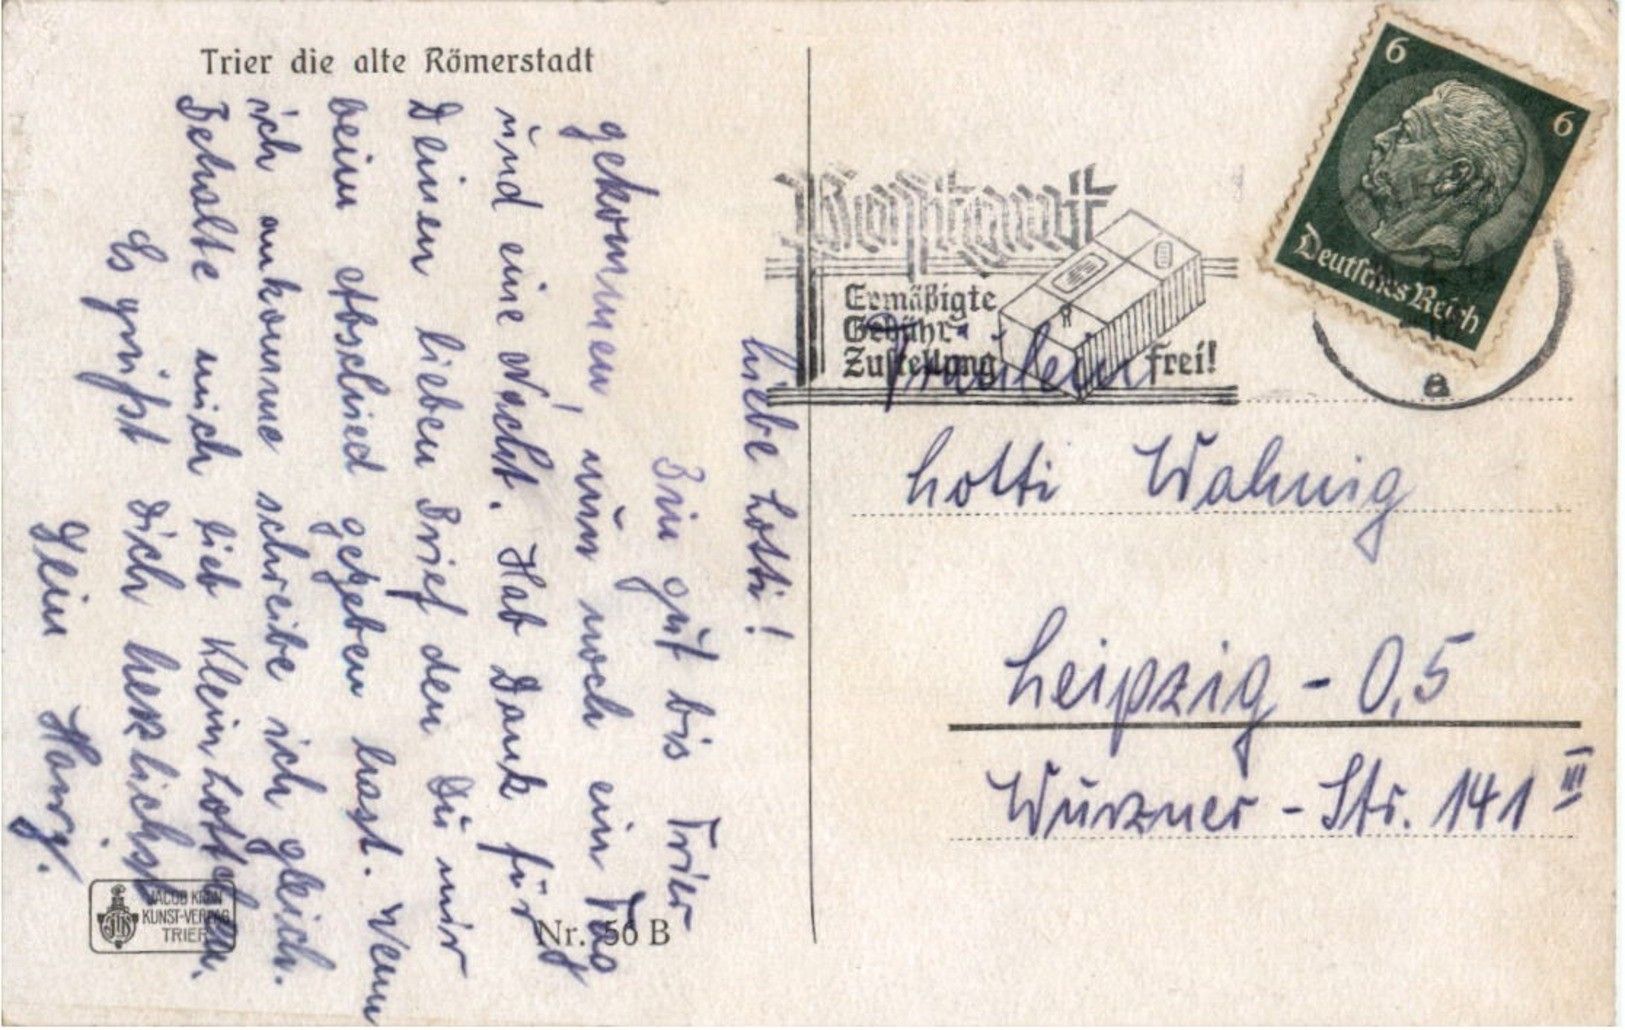 Trier die alte Römerstadt
Liebe Lotti!
Bin gut bis Trier
gekommen, nun noch ein Tag
und eine Nacht. Hab Dank für
Deinen lieben Brief den Du mir
beim Abschied gegeben hast. Wenn
ich ankomme schreibe ich gleich.
Behalte mich lieb Klein Lottchen.
Es grüßt Dich herzlichst
Dein
JACOB KRAN
KUNST-VERLAG
TRIER
Nr. 56 B
6
6
Deutsches Reich
Ermäßigte
Gebühr-
Zustellung frei!
a
Fräulein
Lotti Wahnig
Leipzig - O,5
Wurzner - Str. 141 III